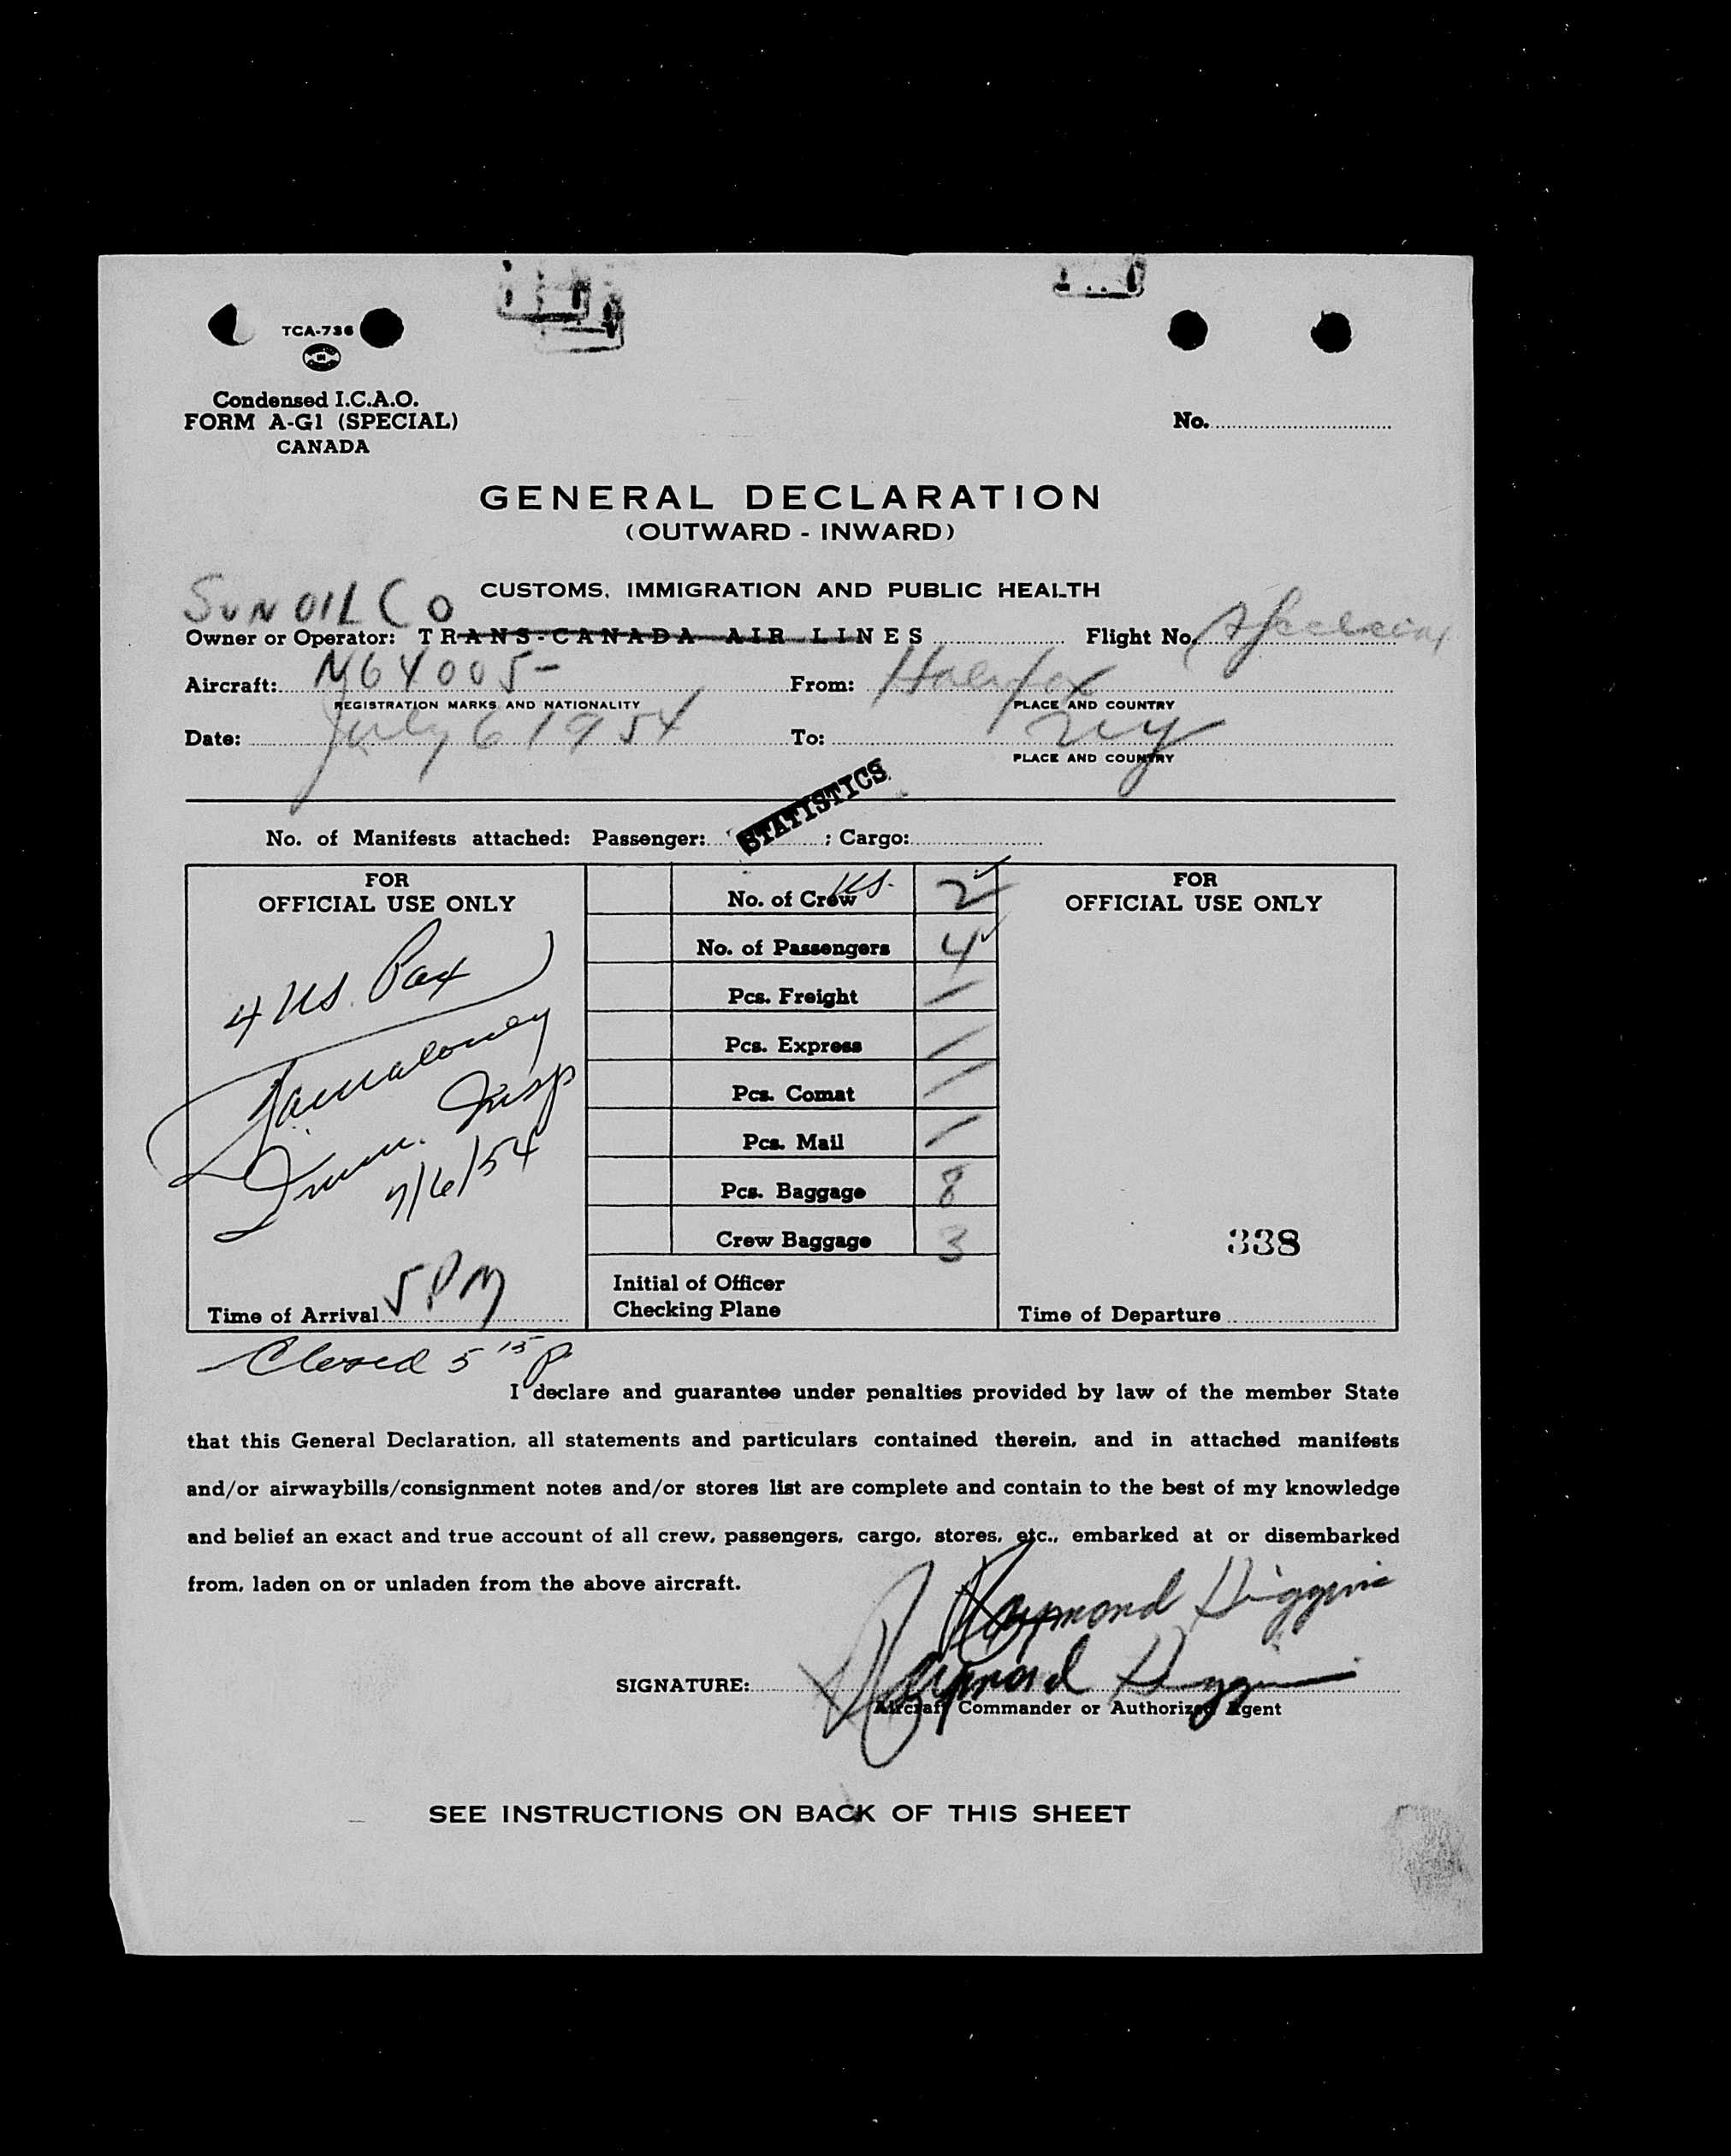 TCA-736
Condensed I.C.A.O.
FORM A-G1 (SPECIAL)
CANADA
No.
GENERAL DECLARATION
(OUTWARD - INWARD)
CUSTOMS, IMMIGRATION AND PUBLIC HEALTH
SUN OIL CO
Owner or Operator: TRANS-CANADA AIR LINES Flight No. Special
Aircraft: N64005- From: Halifax
REGISTRATION MARKS AND NATIONALITY PLACE AND COUNTRY
Date: July 6 1954 To: NY
PLACE AND COUNTRY
STATISTICS
No. of Manifests attached: Passenger: ; Cargo:
FOR
OFFICIAL USE ONLY
4 US. Pax
Immu. Insp
7/6/54
Time of Arrival 5 PM
No. of Crew US. 2
No. of Passengers 4
Pcs. Freight /
Pcs. Express /
Pcs. Comat /
Pcs. Mail /
Pcs. Baggage 8
Crew Baggage 3
Initial of Officer
Checking Plane
FOR
OFFICIAL USE ONLY
338
Time of Departure
Closed 5 15 P.
I declare and guarantee under penalties provided by law of the member State
that this General Declaration, all statements and particulars contained therein, and in attached manifests
and/or airwaybills/consignment notes and/or stores list are complete and contain to the best of my knowledge
and belief an exact and true account of all crew, passengers, cargo, stores, etc., embarked at or disembarked
from, laden on or unladen from the above aircraft.
Raymond Higgins
SIGNATURE: Raymond Higgins
Aircraft Commander or Authorized Agent
SEE INSTRUCTIONS ON BACK OF THIS SHEET